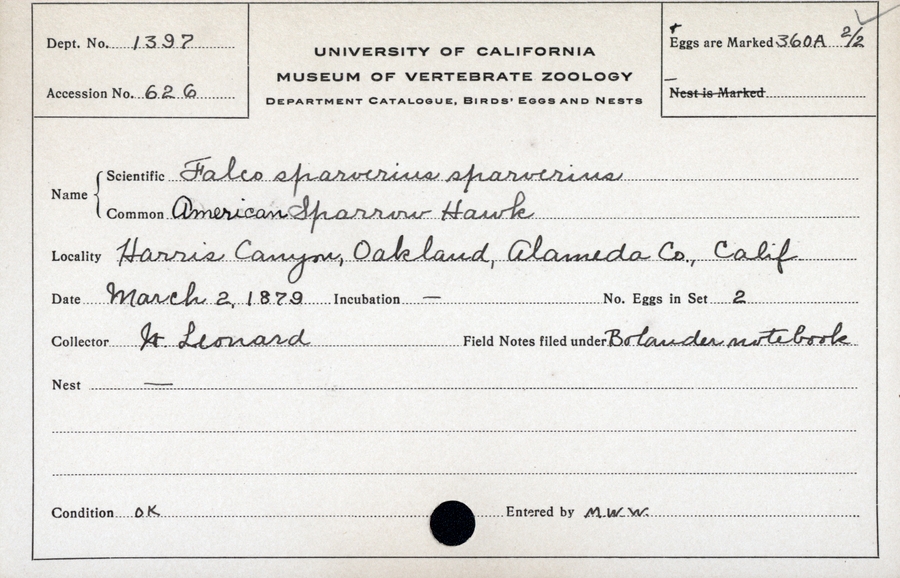 Dept. No. 1397
Accession No. 626
UNIVERSITY OF CALIFORNIA
MUSEUM OF VERTEBRATE ZOOLOGY
DEPARTMENT CATALOGUE, BIRDS' EGGS AND NESTS
Eggs are Marked 360A 2/2
Nest is Marked
Name
Scientific Falco sparverius sparverius
Common American Sparrow Hawk
Locality Harris Canyon, Oakland, Alameda Co., Calif
Date March 2, 1879 Incubation — No. Eggs in Set 2
Collector W. Leonard Field Notes filed under Bolander notebook
Nest —
Condition OK Entered by M.W.W.